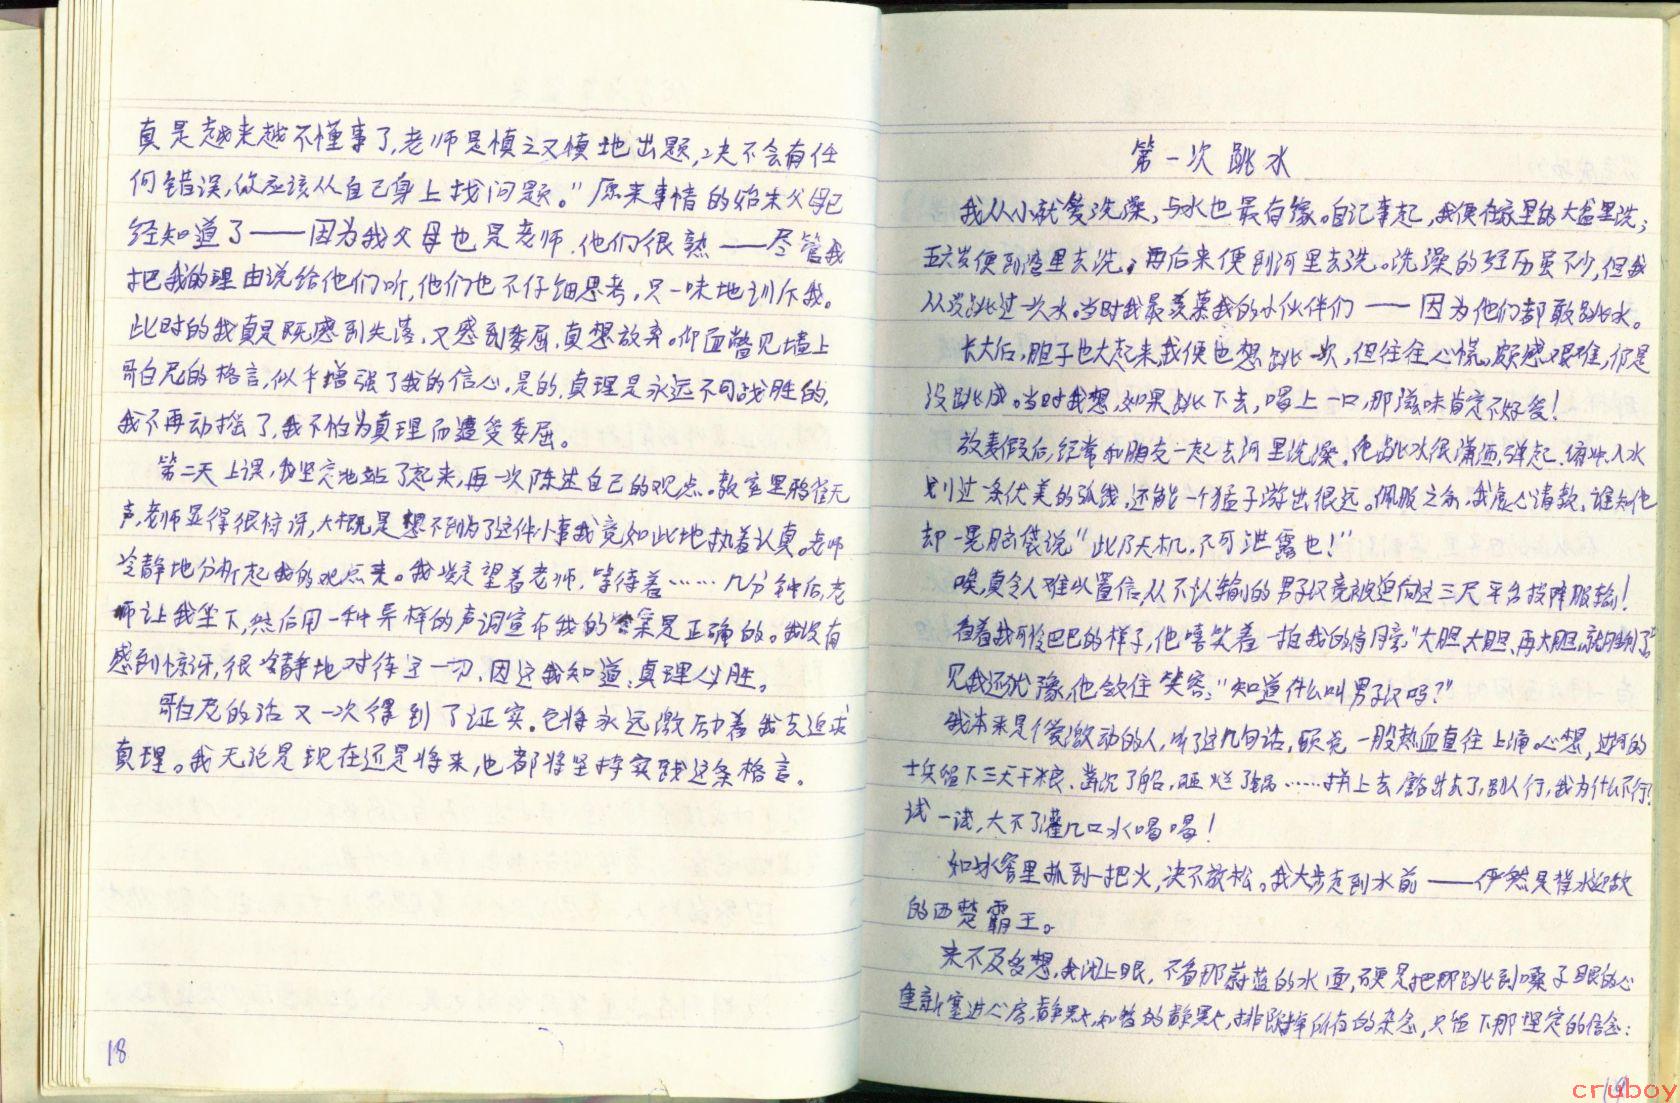 真是越来越不懂事了,老师是慎之又慎地出题,决不会有任
何错误,你应该从自己身上找问题。"原来事情的始末父母已
经知道了——因为我父母也是老师.他们很熟——尽管我
把我的理由说给他们听,他们也不仔细思考,只一味地训斥我。
此时的我真是既感到失落,又感到委屈,真想放弃。仰面瞥见墙上
哥白尼的格言,似乎增强了我的信心,是的,真理是永远不可战胜的,
我不再动摇了,我不怕为真理而遭受委屈。
第二天上课,我坚定地站了起来,再一次陈述自己的观点。教室里鸦雀无
声,老师显得很惊讶,大概是想不到为了这件小事我竟如此地执着认真。老师
冷静地分析起我的观点来。我坚定望着老师,等待着……几分钟后,老
师让我坐下,然后用一种异样的声调宣布我的答案是正确的。我没有
感到惊讶,很冷静地对待这一切,因这我知道:真理必胜。
哥白尼的话又一次得到了证实。它将永远激励着我去追求
真理。我无论是现在还是将来,也都将坚持实践这条格言。
18
第一次跳水
我从小就爱洗澡,与水也最有缘。自记事起,我便在家里的大盆里洗;
五六岁便到湾里去洗;再后来便到河里去洗。洗澡的经历虽不少,但我
从没跳过一次水。当时我最羡慕我的小伙伴们——因为他们都敢跳水。
长大后,胆子也大起来,我便也想跳一次,但往往心慌,颇感艰难,仍是
没跳成。当时我想,如果跳下去,喝上一口,那滋味肯定不好受!
放麦假后,经常和朋友一起去河里洗澡。他跳水很潇洒,弹起.俯冲.入水
划过一条优美的弧线,还能一个猛子游出很远。佩服之余,我虚心请教,谁知他
却一晃脑袋说"此乃天机,不可泄露也!"
唉,真令人难以置信,从不认输的男子汉竟被迫向这三尺平台投降服输!
看着我可怜巴巴的样子,他嘻笑着一拍我的肩膀:"大胆、大胆、再大胆,就胜利了。"
见我还犹豫,他敛住笑容:"知道什么叫男子汉吗?"
我本来是个爱激动的人,听了这几句话,顿觉一股热血直往上涌。心想,过河的
士兵留下三天干粮.凿沉了船,砸烂了锅……拼上去豁出去了,别人行,我为什么不行!
试一试,大不了灌几口水喝喝!
如冰窖里抓到一把火,决不放松。我大步走到水前——俨然是背水迎敌
的西楚霸王。
来不及多想,我闭上眼,不看那蔚蓝的水面,硬是把那跳到嗓子眼的心
重新塞进心房,静默,短暂的静默,排除掉所有的杂念,只留下那坚定的信念:
19
cruboy